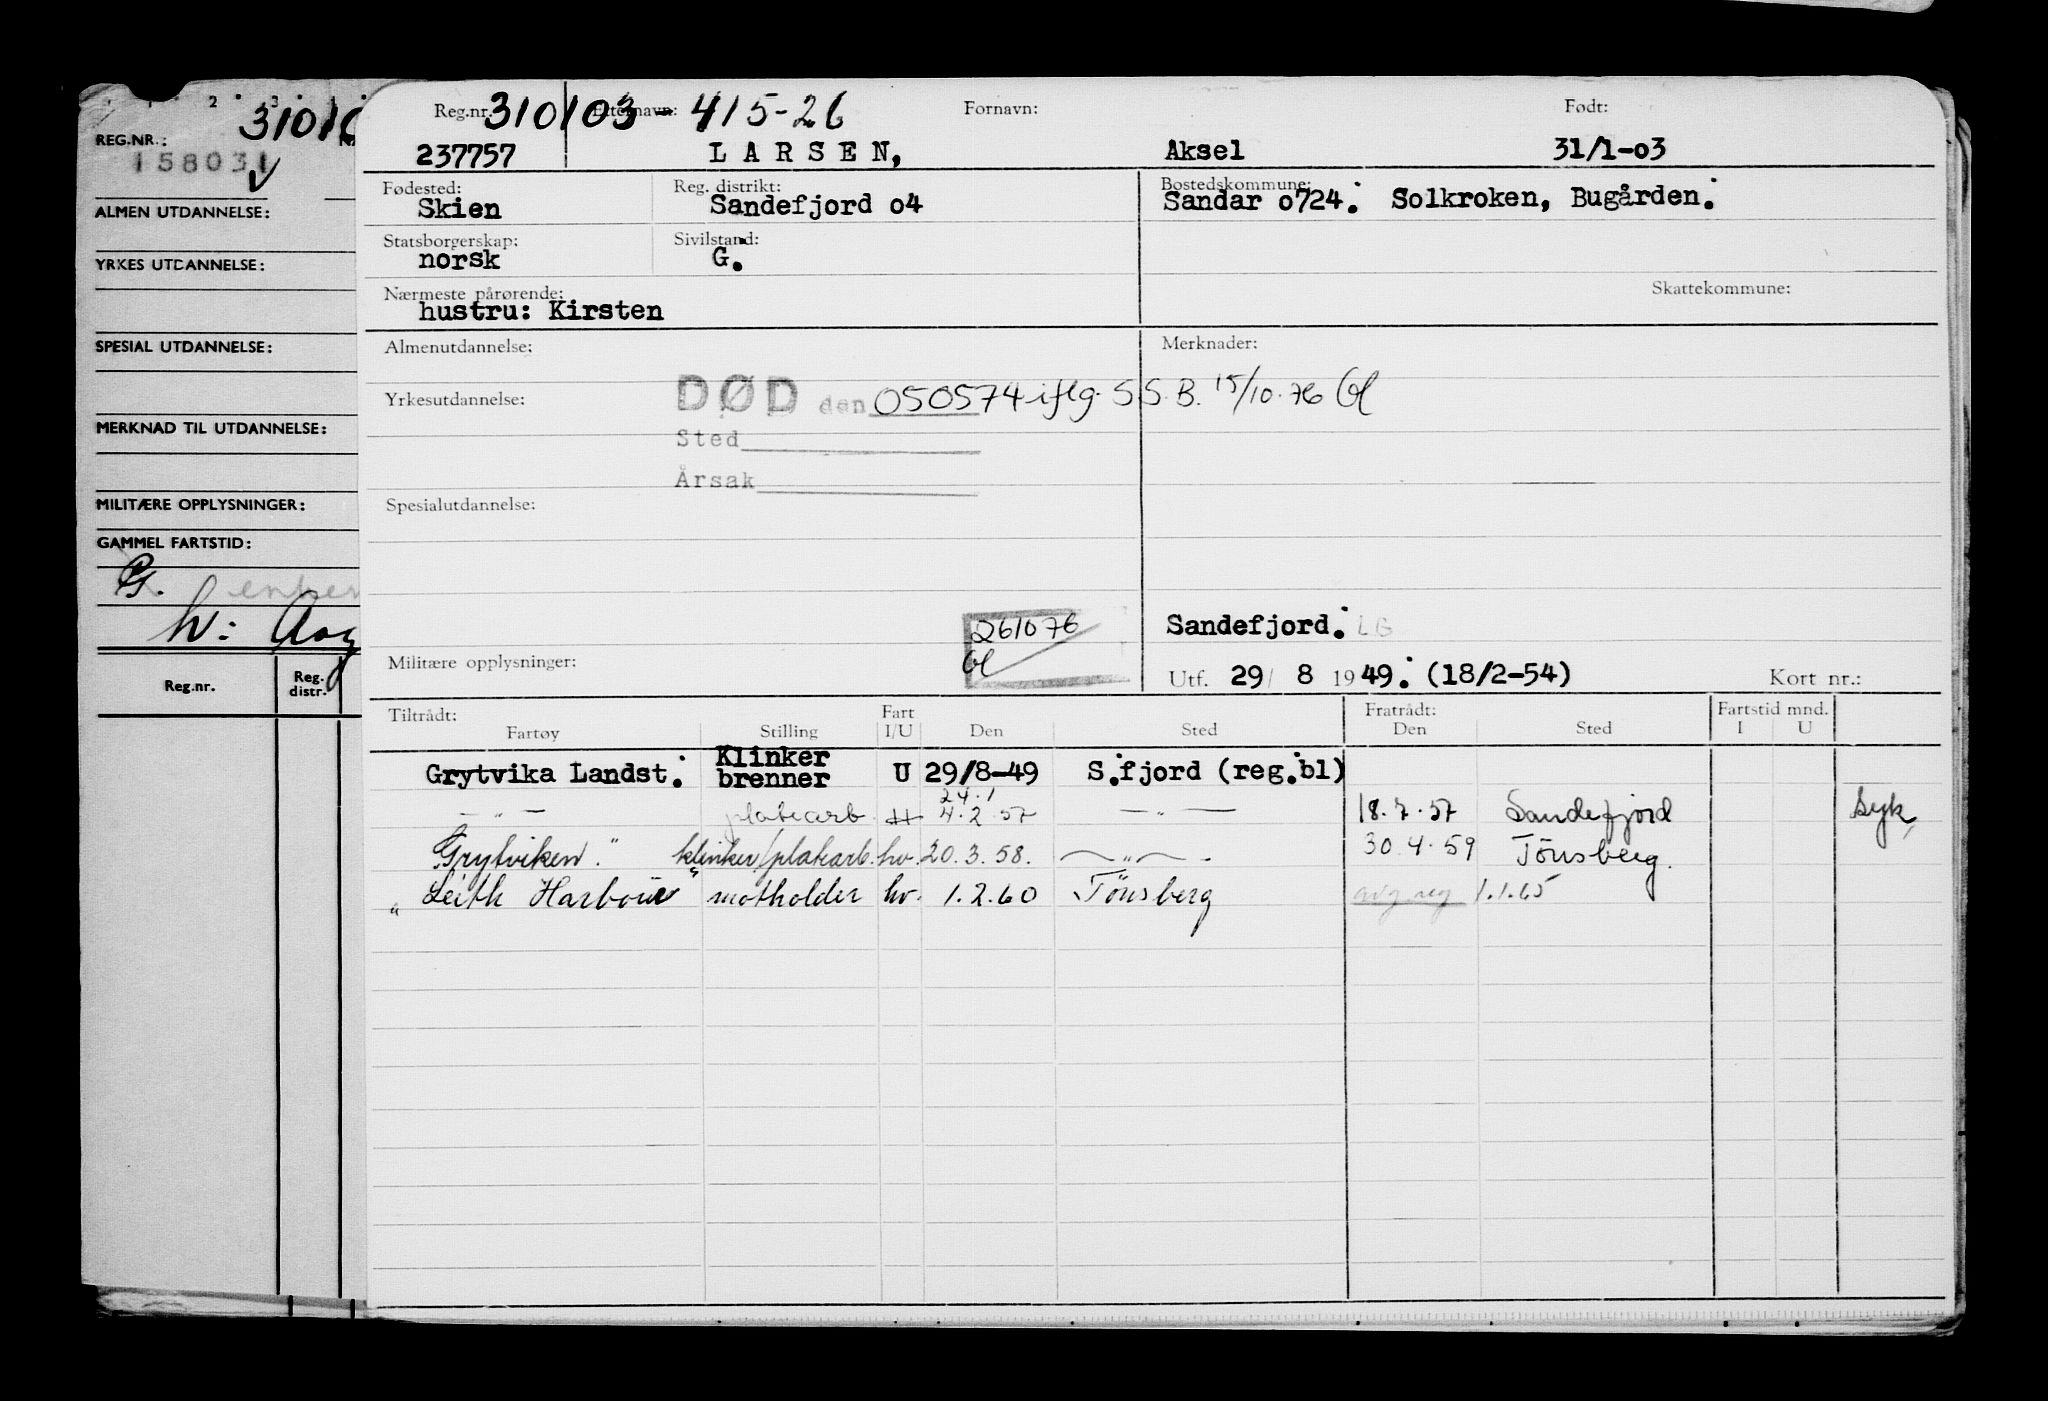 2 3
REG.NR.: 31010
158031
ALMEN UTDANNELSE:
YRKES UTDANNELSE:
SPESIAL UTDANNELSE:
MERKNAD TIL UTDANNELSE:
MILITÆRE OPPLYSNINGER:
GAMMEL FARTSTID:
G. enker
h: Aag
Reg.nr. Reg. distr.
Reg.nr. 310103 - 415-26 Fornavn: Født:
237757 LARSEN, Aksel 31/1-03
Fødested: Reg. distrikt: Bostedskommune:
Skien Sandefjord o4 Sandar o724. Solkroken, Bugården.
Statsborgerskap: Sivilstand:
norsk G.
Nærmeste pårørende: Skattekommune:
hustru: Kirsten
Almenutdannelse: Merknader:
Yrkesutdannelse: DØD den 050574 iflg. S.S.B. 15/10.76 Gl
Sted
Årsak
Spesialutdannelse:
261076 Sandefjord. LG
Gl
Militære opplysninger: Utf. 29/ 8 1949. (18/2-54) Kort nr.:
Tiltrådt: Fart Fratrådt: Fartstid mnd.
Fartøy Stilling I/U Den Sted Den Sted I U
Grytvika Landst. Klinker brenner U 29/8-49 S.fjord (reg.bl)
24.1
— " — platearb. 4.2.57 — " — 18.7.57 Sandefjord Syk
Grytviken " klinker/platearb. hv. 20.3.58. — " — 30.4.59 Tönsberg.
" Leith Harbour " motholder hv. 1.2.60 Tönsberg avg. reg 1.1.65